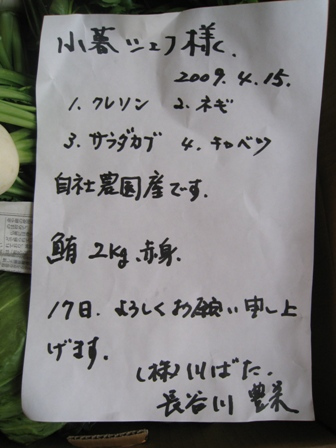 小暮シェフ様へ
2009.4.15.
1. クレソン 2. ネギ
3. サラダカブ 4. キャベツ
自社農園産です.
鮪 2kg.赤身.
17日. よろしくお願い申し上
げます.
(株)川ばた.
長谷川 豊